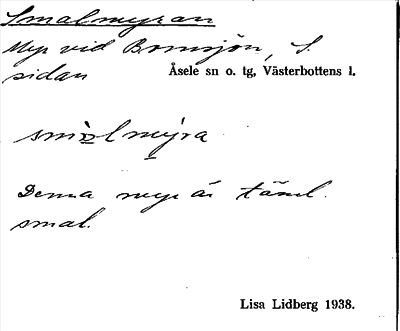 Smalmyran
Myr vid Bomsjön, S.
sidan Åsele sn o. tg, Västerbottens l.
smalmyra
Denna myr är täml.
smal.
Lisa Lidberg 1938.